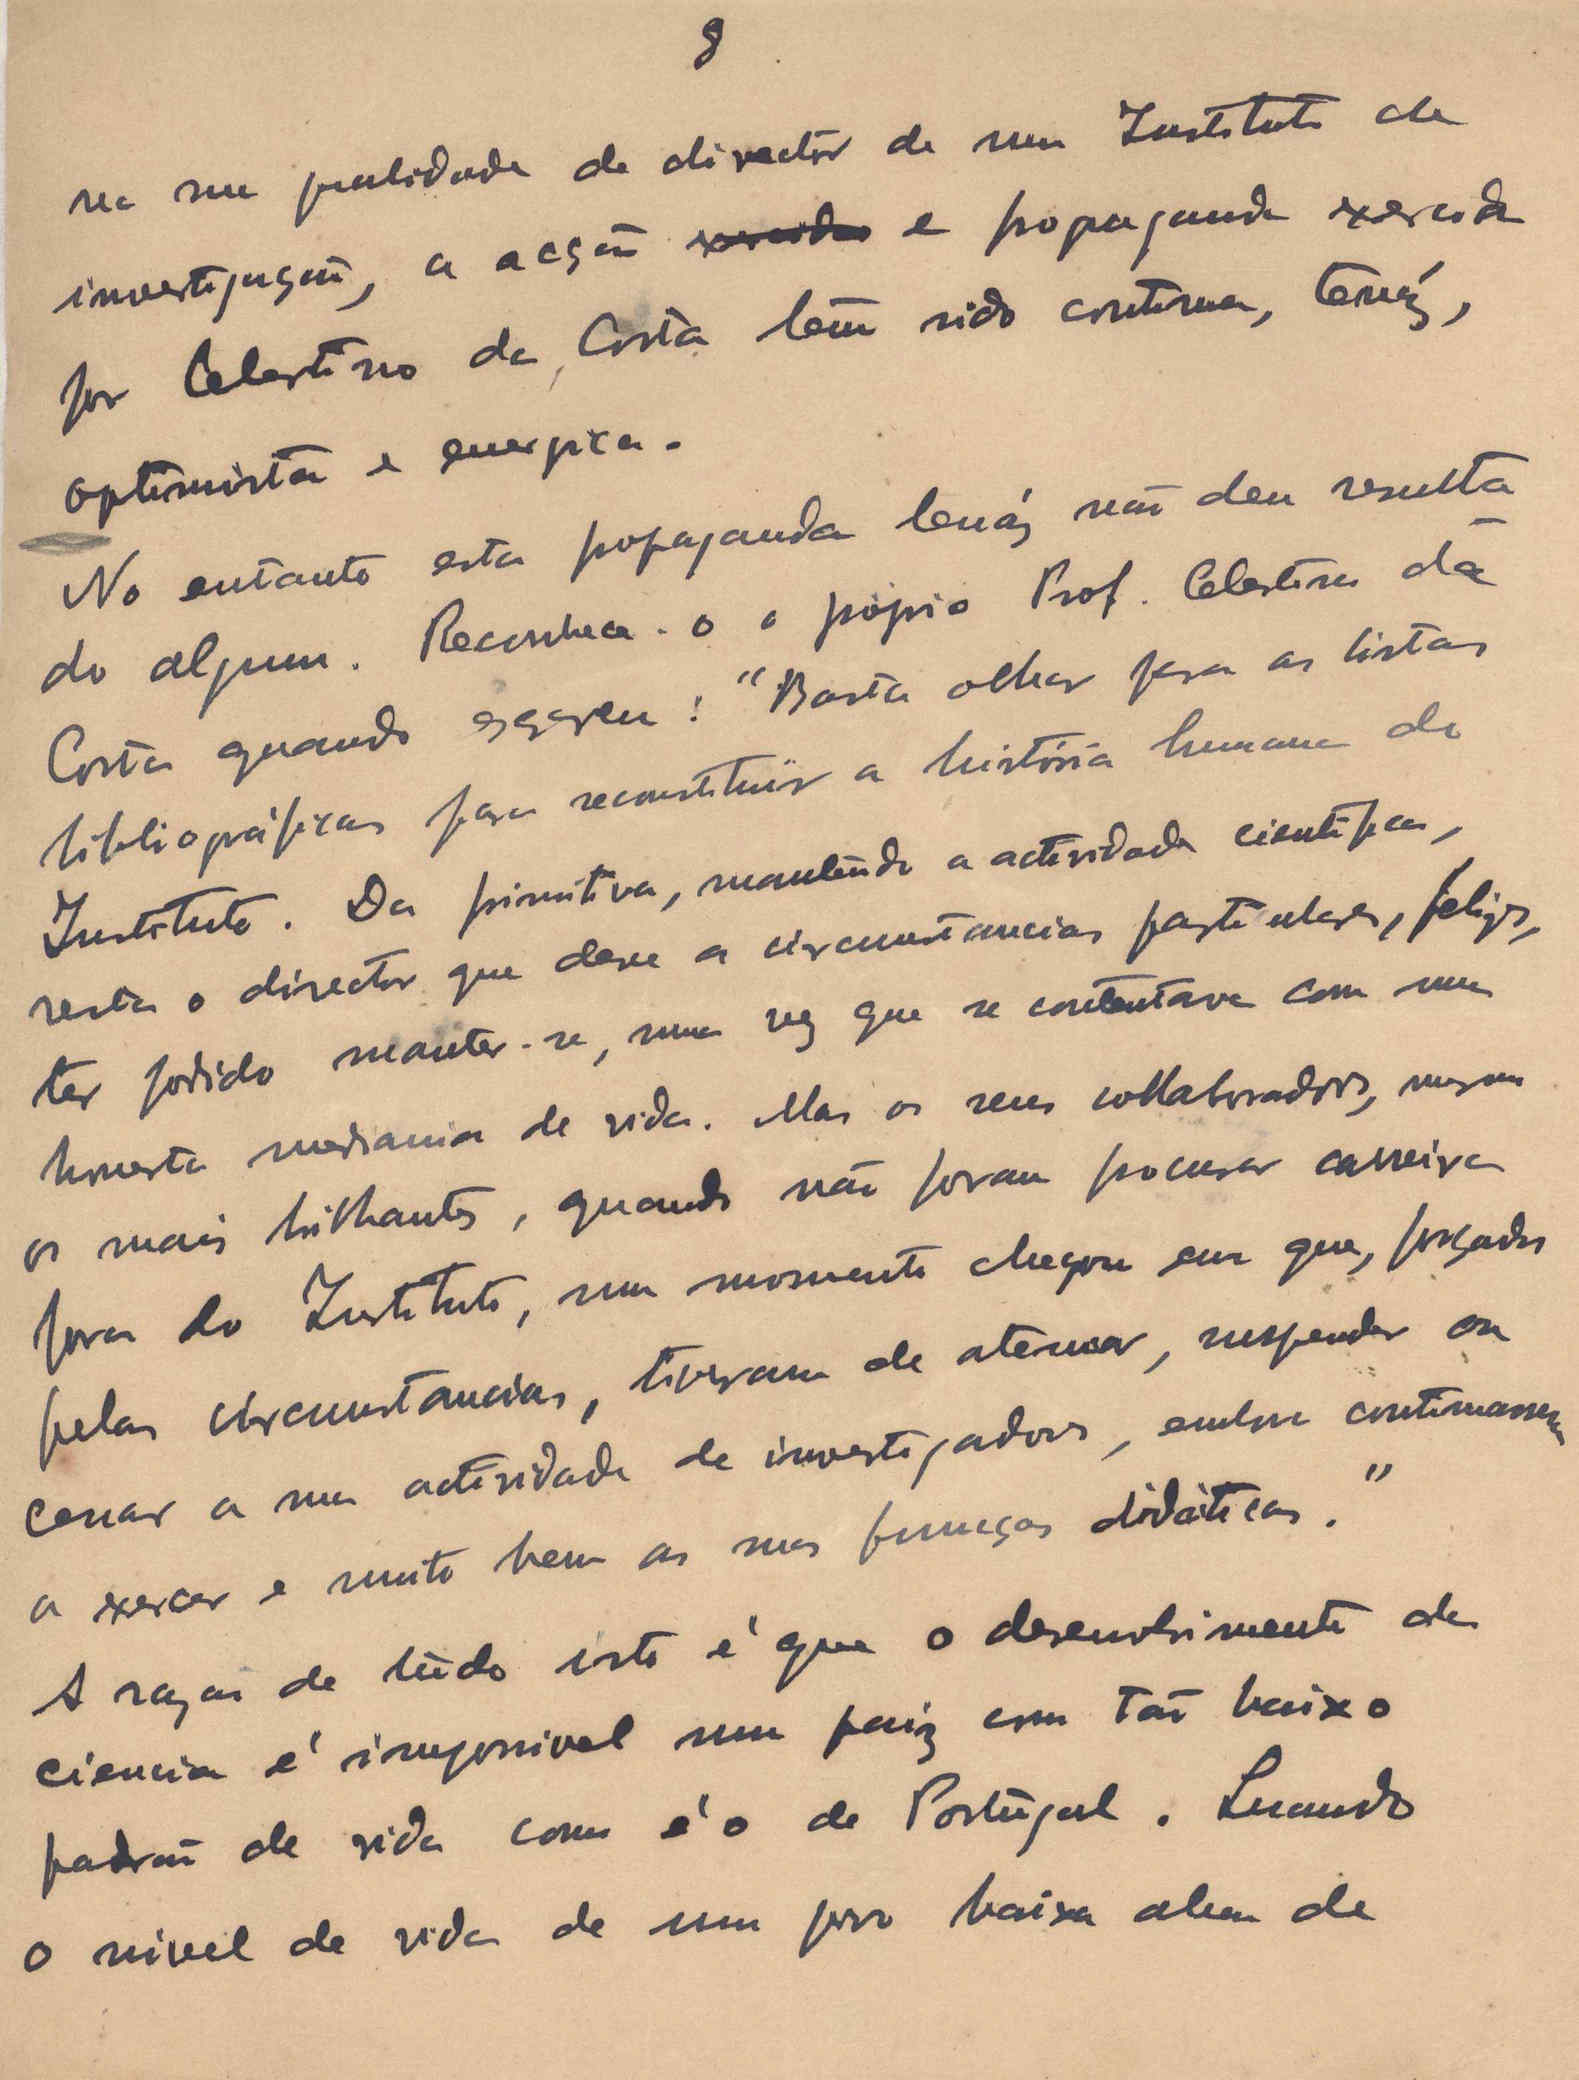 8
na sua qualidade de director de um Instituto de
investigação, a acção exercida e propaganda exercida
por Celestino da Costa tem sido continua, tenáz,
optimista e energica.
No entanto esta propaganda tenáz não deu resulta
do algum. Reconhece-o o próprio Prof. Celestino da
Costa quando escreveu: "Basta olhar para as listas
bibliográficas para reconstituir a história humana do
Instituto. Da primitiva, mantendo a actividade cientifica,
resta o director que deve a circunstancias particulares, felizes,
ter podido manter-se, uma vez que se contentava com uma
honesta mediania de vida. Mas os seus collaboradores, mesmo
os mais brilhantes, quando não foram procurar carreira
fora do Instituto, um momento chegou em que, forçados
pelas circunstancias, tiveram de atenuar, suspender ou
cessar a sua actividade de investigadores, embora continuassem
a exercer e muito bem as suas funções didáticas."
A razão de tudo isto é que o desenvolvimento da
ciencia é impossivel num paiz com tão baixo
padrão de vida como é o de Portugal. Quando
o nivel de vida de um povo baixa alem de